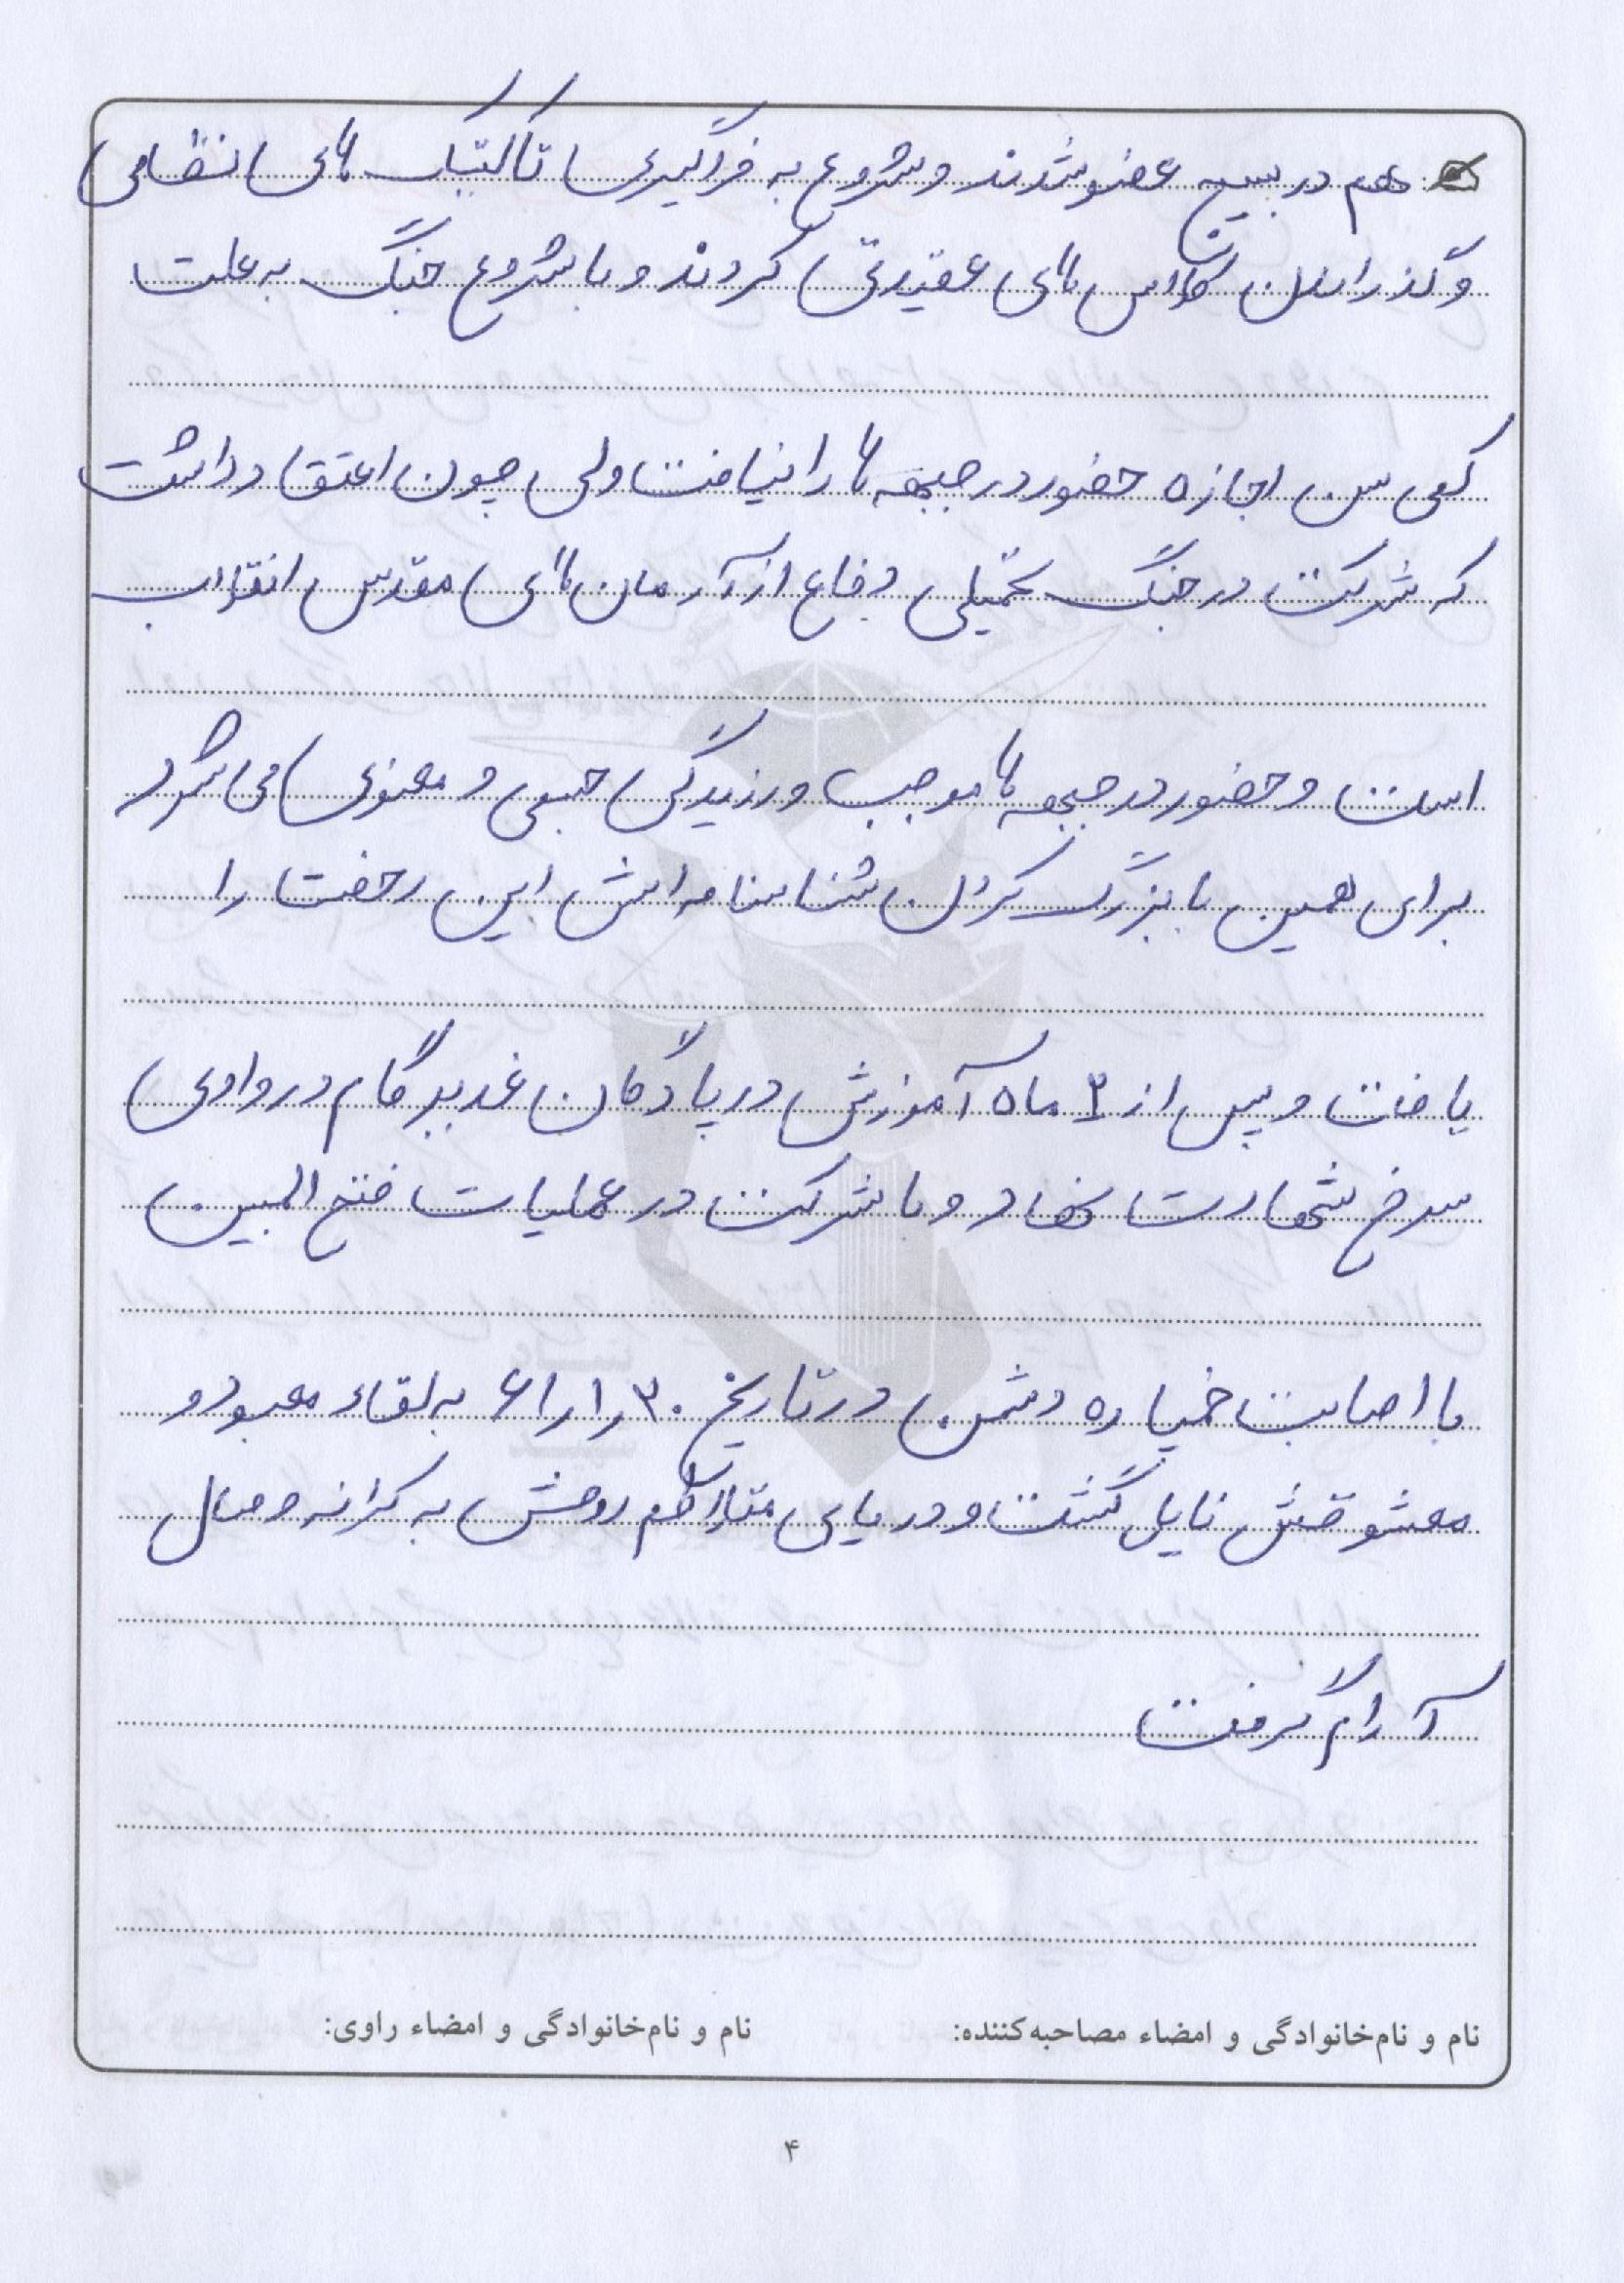 هم در بسیج عضو شدند و شروع به فراگیری تاکتیک های نظامی
و گذراندن کلاس های عقیدتی کردند و با شروع جنگ به علت
کمی سن اجازه حضور در جبهه ها را نیافت ولی چون اعتقاد داشت
که شرکت در جنگ تحمیلی دفاع از آرمان های مقدس انقلاب
است و حضور در جبهه ها موجب ورزیدگی جسمی و معنوی می شود
برای همین با بزرگ کردن شناسنامه اش این رخصت را
یافت و پس از ۳ ماه آموزش در پادگان غدیر گام در وادی
سرخ شهادت نهاد و با شرکت در عملیات فتح المبین
با اصابت خمپاره دشمن در تاریخ ۶۱/۱/۳۰ به لقاء معبود و
معشوقش نایل گشت و دریای متلاطم روحش به کرانه وصال
آرام گرفت
نام و نام‌خانوادگی و امضاء مصاحبه‌کننده: نام و نام‌خانوادگی و امضاء راوی:
۴